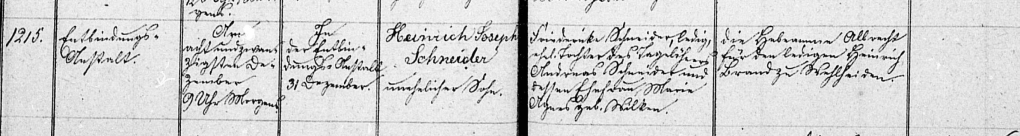 1215.
Entbindungs-
Anstalt.
Am
achtundzwan-
zigsten De-
zember
9 Uhr Morgens
In
der Entbin-
dungs-Anstalt
31 Dezember.
Heinrich Joseph
Schneider
unehelicher Sohn.
Friederike Schneider, ledig,
ehel. Tochter des Taglöhners
Andreas Schneider und
dessen Ehefrau Marie
Agnes geb. Wilken.
die Hebamme Albrecht
für den ledigen Heinrich
Brand zu